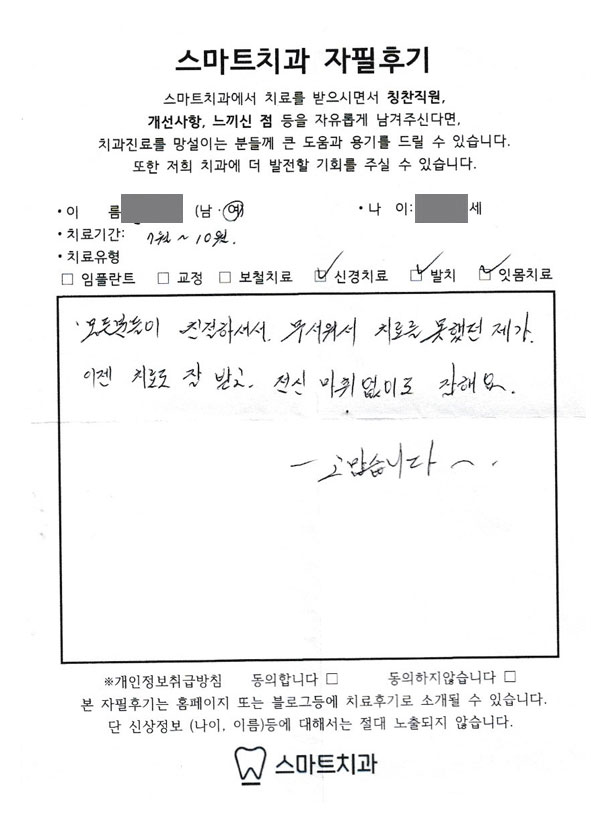 스마트치과 자필후기
스마트치과에서 치료를 받으시면서 칭찬직원,
개선사항, 느끼신 점 등을 자유롭게 남겨주신다면,
치과진료를 망설이는 분들께 큰 도움과 용기를 드릴 수 있습니다.
또한 저희 치과에 더 발전할 기회를 주실 수 있습니다.
• 이 름 (남 · 여) • 나 이: 세
• 치료기간: 7월 ~ 10월.
• 치료유형
□ 임플란트 □ 교정 □ 보철치료 ☑ 신경치료 ☑ 발치 ☑ 잇몸치료
모든분들이 친절하셔서. 무서워서 치료를 못했던 제가.
이젠 치료도 잘 받고. 전신 마취 없이도 잘해요.
- 고맙습니다 ~.
※개인정보취급방침 동의합니다 □ 동의하지않습니다 □
본 자필후기는 홈페이지 또는 블로그등에 치료후기로 소개될 수 있습니다.
단 신상정보 (나이, 이름)등에 대해서는 절대 노출되지 않습니다.
스마트치과